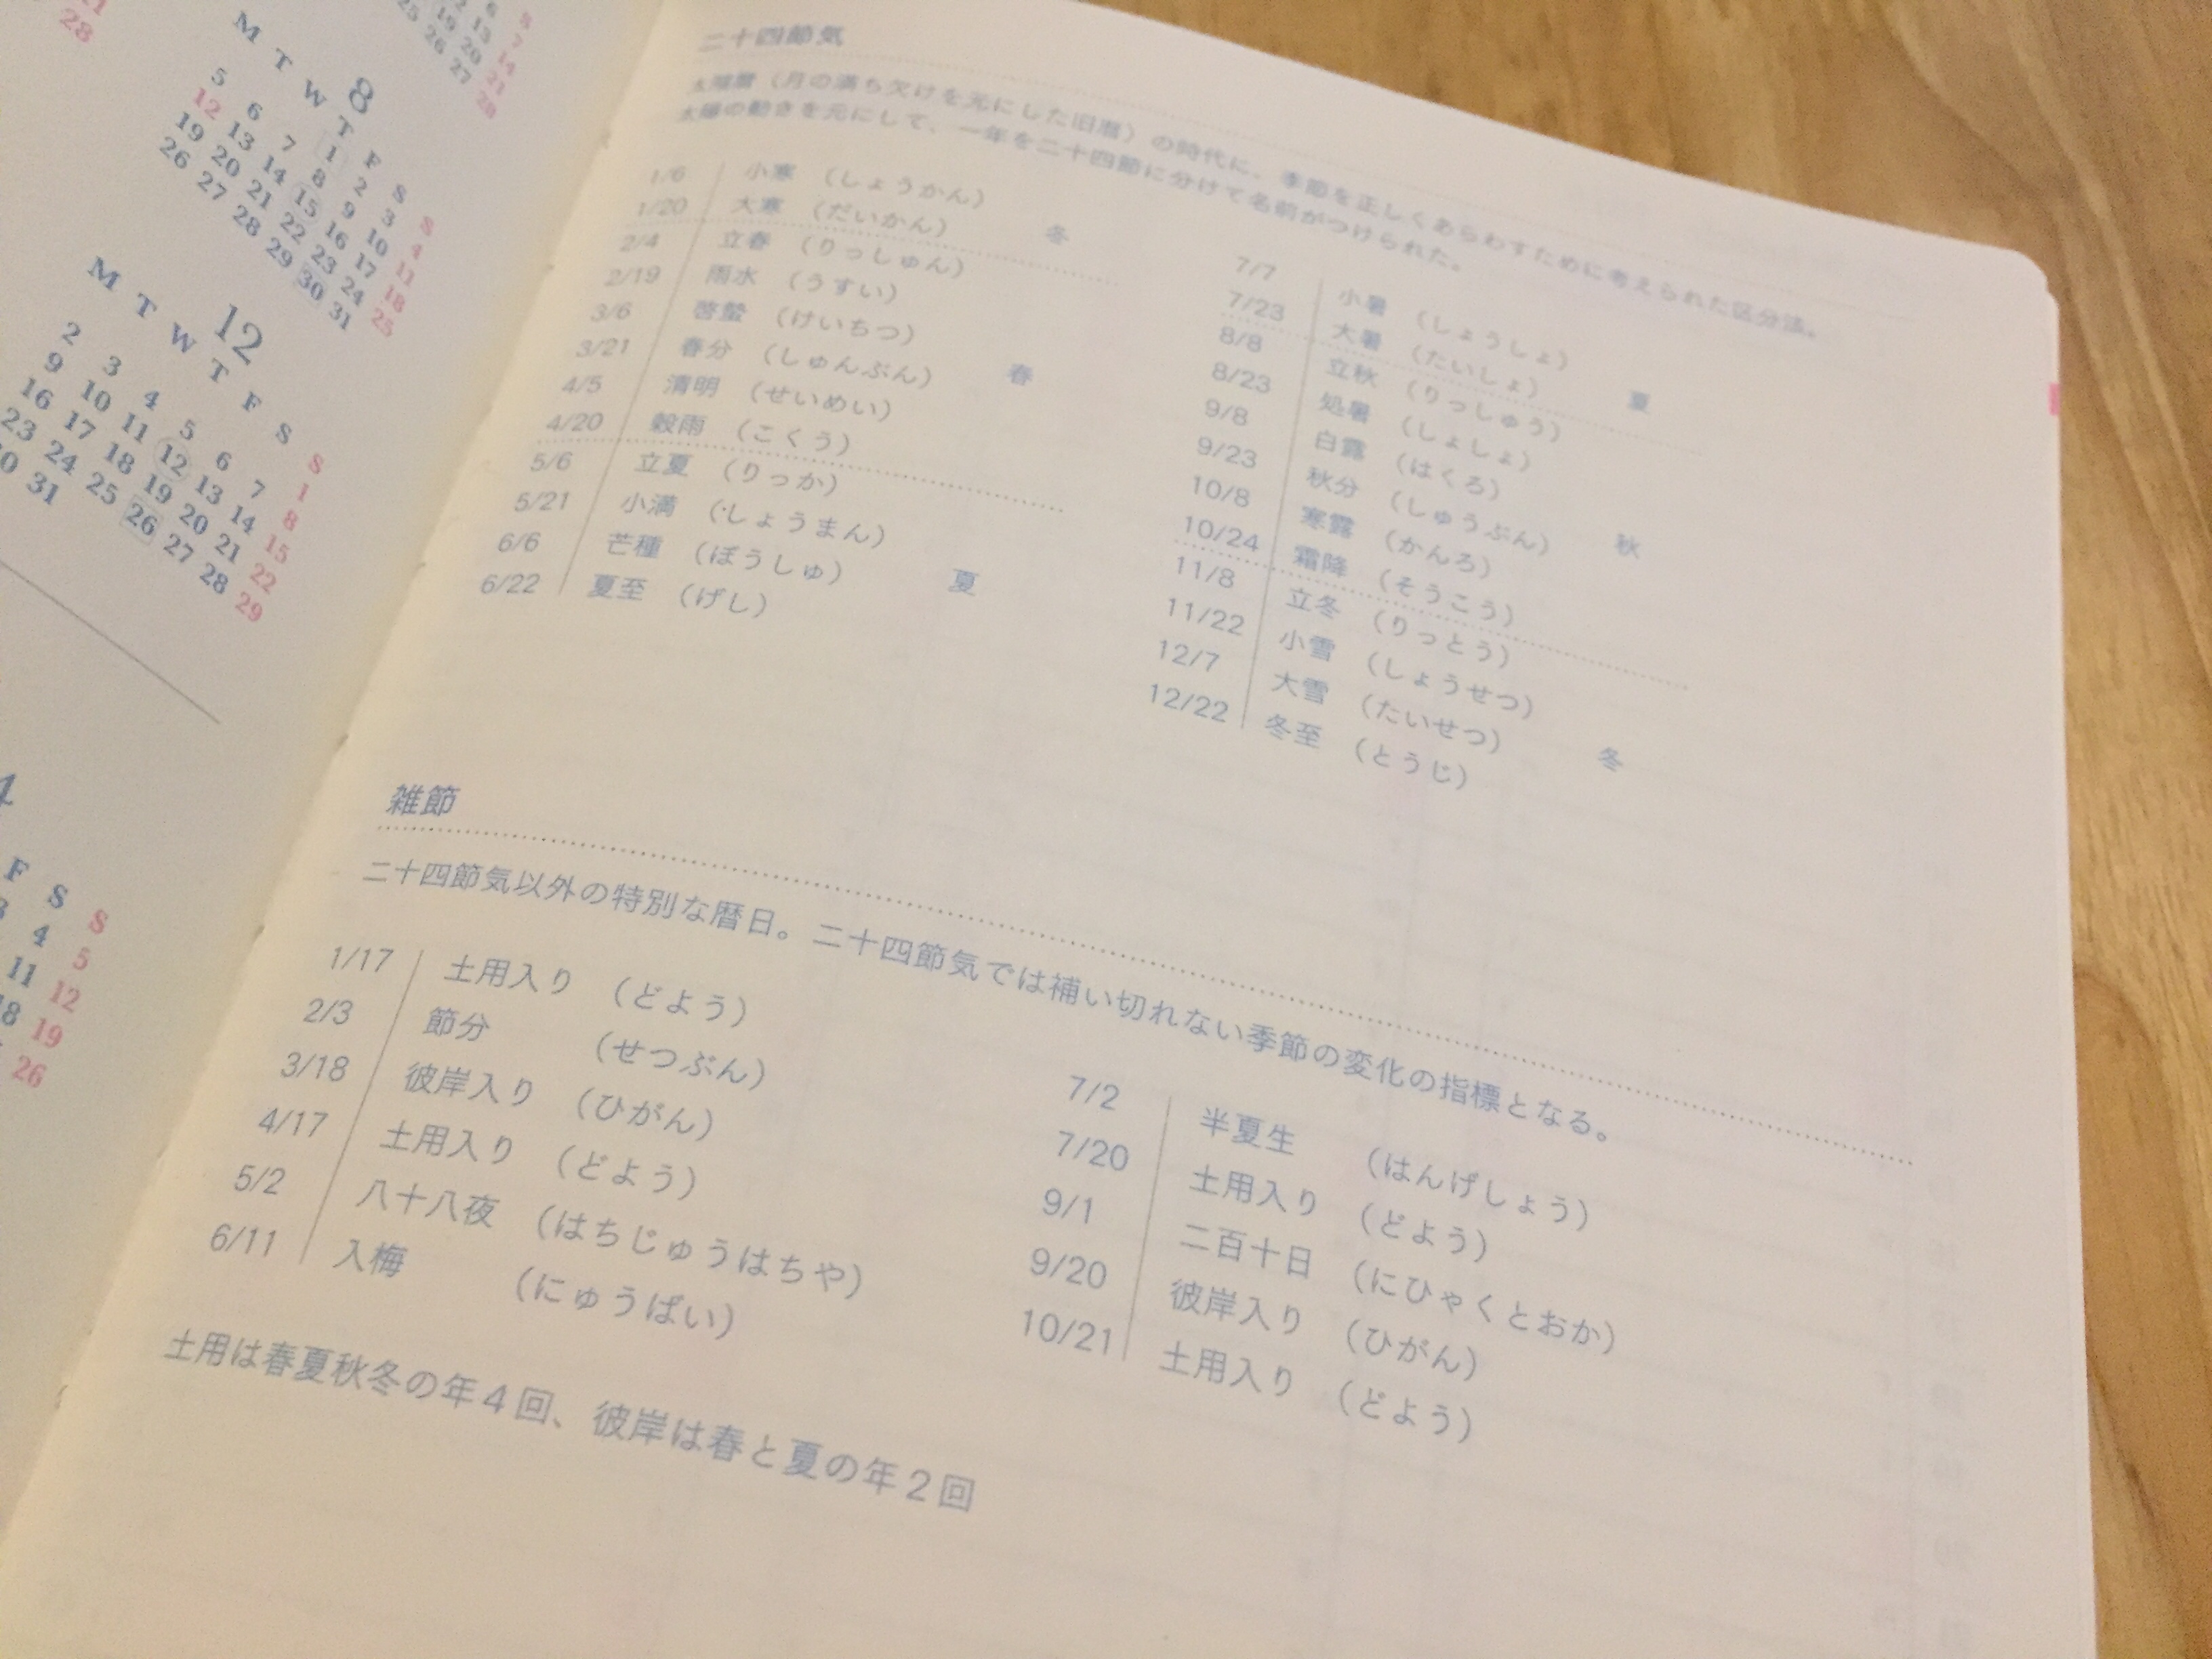 28
6
13
19 20 21
25 26 27 28
S
7
14
8
M T W T F S S
1 2 3 4
5 6 7 8 9 10 11
12 13 14 15 16 17 18
19 20 21 22 23 24 25
26 27 28 29 30 31
12
M T W T F S S
1
2 3 4 5 6 7 8
9 10 11 12 13 14 15
16 17 18 19 20 21 22
23 24 25 26 27 28 29
31
F S S
4 5
11 12
18 19
26
二十四節気
太陽暦（月の満ち欠けを元にした旧暦）の時代に、季節を正しくあらわすために考えられた区分法。
太陽の動きを元にして、一年を二十四節に分けて名前がつけられた。
1/6 小寒 （しょうかん）
1/20 大寒 （だいかん） 冬
2/4 立春 （りっしゅん）
2/19 雨水 （うすい）
3/6 啓蟄 （けいちつ）
3/21 春分 （しゅんぶん） 春
4/5 清明 （せいめい）
4/20 穀雨 （こくう）
5/6 立夏 （りっか）
5/21 小満 （しょうまん）
6/6 芒種 （ぼうしゅ） 夏
6/22 夏至 （げし）
7/7 小暑 （しょうしょ）
7/23 大暑 （たいしょ） 夏
8/8 立秋 （りっしゅう）
8/23 処暑 （しょしょ）
9/8 白露 （はくろ）
9/23 秋分 （しゅうぶん） 秋
10/8 寒露 （かんろ）
10/24 霜降 （そうこう）
11/8 立冬 （りっとう）
11/22 小雪 （しょうせつ）
12/7 大雪 （たいせつ） 冬
12/22 冬至 （とうじ）
雑節
二十四節気以外の特別な暦日。二十四節気では補い切れない季節の変化の指標となる。
1/17 土用入り （どよう）
2/3 節分 （せつぶん）
3/18 彼岸入り （ひがん）
4/17 土用入り （どよう）
5/2 八十八夜 （はちじゅうはちや）
6/11 入梅 （にゅうばい）
7/2 半夏生 （はんげしょう）
7/20 土用入り （どよう）
9/1 二百十日 （にひゃくとおか）
9/20 彼岸入り （ひがん）
10/21 土用入り （どよう）
土用は春夏秋冬の年４回、彼岸は春と夏の年２回